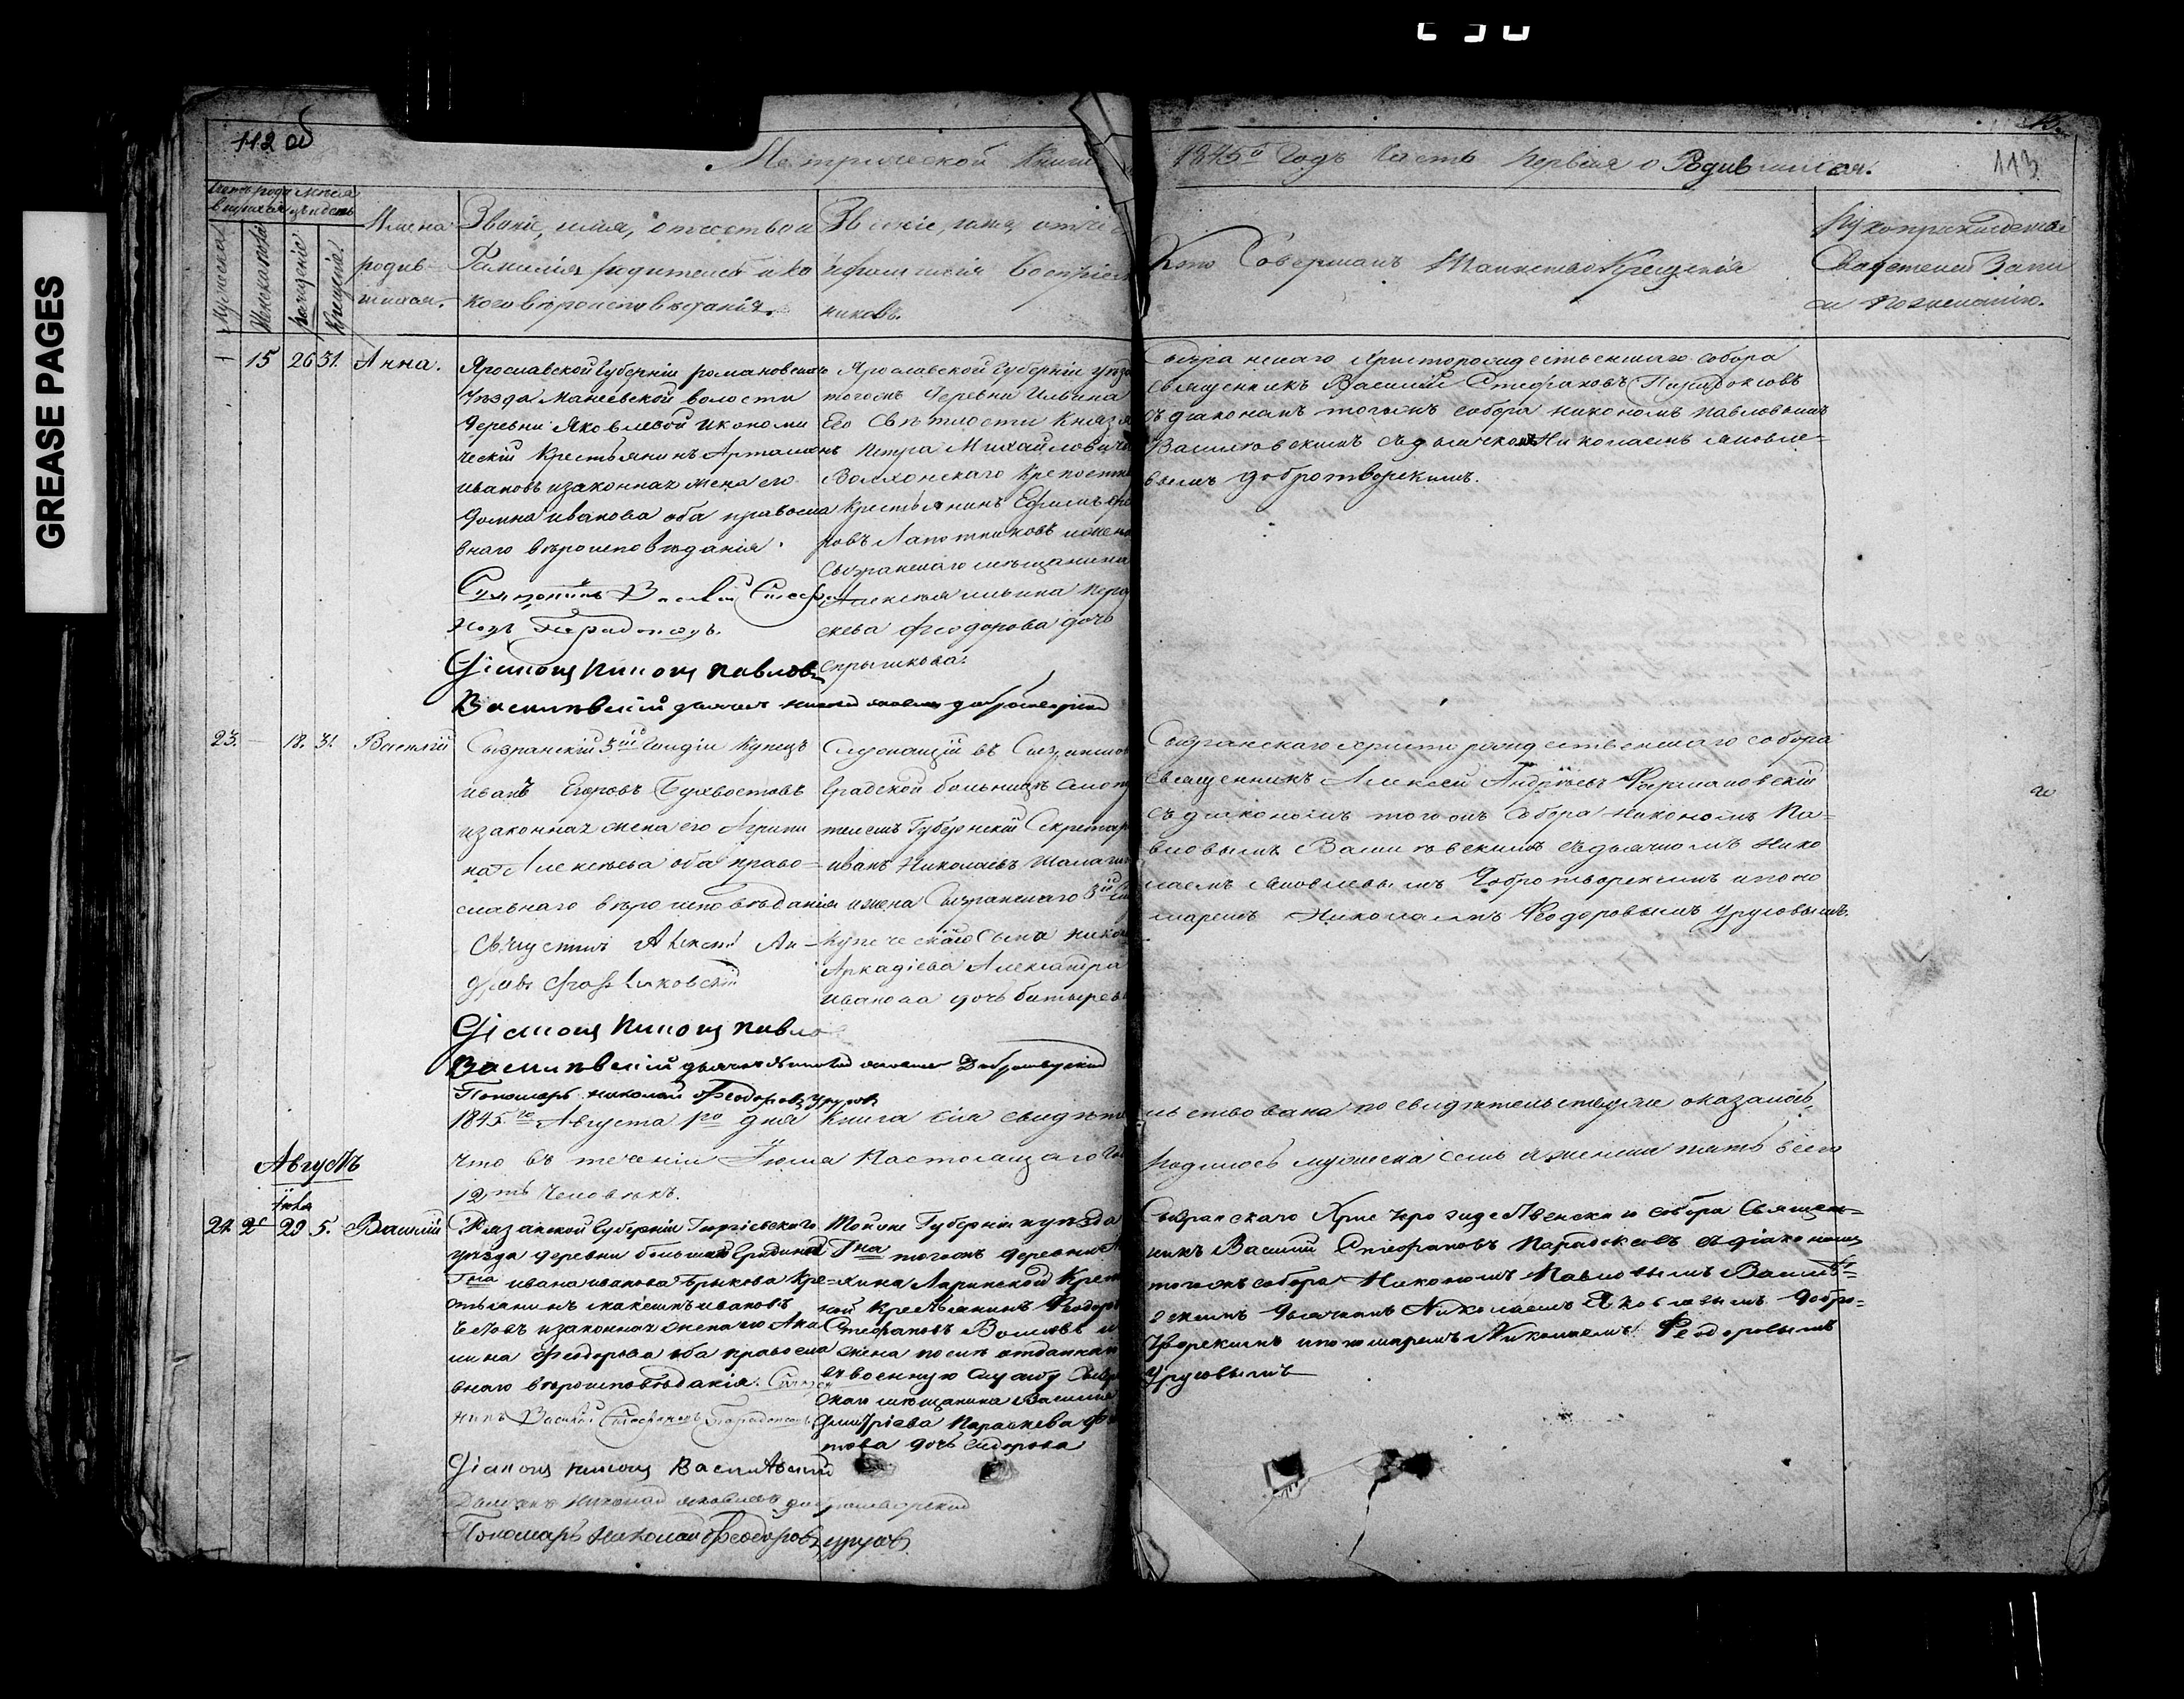 GREASE PAGES
112 об
113
Метрической Книги 1845го Годъ Часть первая о Родившихся.
Мужеска
Женска
рожденіе
Крещенія
Имена родив-
шихся.
Званіе, имя, отчество и
Фамилія родителей и ка
кого вѣроисповѣданія.
Званіе, имя, отче
и фамилія Воспріем
никовъ.
Кто Совершалъ Таинство Крещенія
Рукоприкладство
Свидетелей Запи
си по желанію.
15 26 31. Анна.
Ярославской Губерніи романовскаго
Уѣзда Манѣевской волости
деревни Яковлевой Икономи
ческій Крестьянинъ Артамонъ
ивановъ и законная жена его
Домна иванова оба правосла
внаго вѣроисповѣданія.
Священникъ Василій Стефа
новъ Парадоксовъ.
Діаконъ Никонъ Павловъ
Васильевскій дьячекъ Николай Яковлевъ Добротворскій
Ярославской Губерніи уѣзда
тогожъ деревни Ильина
Его Свѣтлости Князя
Петра Михайловича
Волхонскаго Крепостн
Крестьянинъ Ефимъ
ровъ Лапотниковъ и жена
Сызранскаго мѣщанина
Алексѣя ильина пера
скева Феодорова дочь
Спрыжкова.
Сызранскаго Христорождественскаго собора
священникъ Василій Стефановъ Парадоксовъ
съ діакономъ тогожъ собора никономъ павловымъ
Васильевскимъ съ дьячкомъ Николаемъ яковле-
вымъ добротворскимъ.
23. 18. 31. Василій
Сызранскій 3ій Гилдіи Купецъ
иванъ Егоровъ Бухвостовъ
и законная жена его Агрипи
на Алексѣева оба право=
славнаго вѣроисповѣданія
Священникъ Алексѣй Ан-
дреевъ
Діаконъ Никонъ Павло
Васильевскій дьячекъ Николай Яковлевъ Добротворскій
Пономарь николай Феодоровъ Урусовъ
Служащій въ Сызранской
Градской больницѣ смотри
телемъ Губернскій Секретарь
иванъ Николаевъ
и жена Сызранскаго 3ій
Купеческаго Сына никола
Аркадіева Александра
иванова дочь батырева
Сызранскаго христорождественскаго собора
священникъ Алексей Андрѣевъ
съ діакономъ тогожъ Собора никономъ Па=
вловымъ Васильевскимъ съ дьячкомъ Нико
лаемъ яковлевымъ Добротворскимъ и поно
маремъ Николаемъ Феодоровымъ Урусовымъ.
1845го Августа 1го дня Книга сія свидѣте льствована по свидѣтельству оказалось,
что въ теченіи Іюля Настоящаго го родилось мужеска семь а женска пять всего
12ть Человѣкъ.
Августъ
Іюля
24. 29 5. Василій
Казанской Губерніи
уѣзда деревни большой
Гна ивана иванова Брыкова Кре=
стьянинъ максимъ ивановъ
и законная жена его Аку
лина Феодорова оба правосла
внаго вѣроисповѣданія. Священ
никъ Василій Стефановъ Парадоксовъ
Діаконъ никонъ Васильевскій
Дьячекъ Николай яковлевъ добротворскій
Пономарь Николай Феодоровъ урусовъ
Тойже Губерніи и уѣзда
Гна тогожъ деревни
ной Крестьянинъ Феодоръ
Стефановъ Волковъ и
жена по сынѣ отданном
въ военную службу Сызра
скаго мѣщанина Василія
Дмитріева Параскева
това дочь Сидорова
Сызранскаго Христорождественскаго собора Священ=
никъ Василий Стефановъ Парадоксовъ съ діакономъ
тогожъ собора Никономъ Павловымъ Василье=
вскимъ дьячкомъ Николаемъ Яковлевымъ Добро=
творскимъ и пономаремъ Николаемъ Феодоровымъ
Урусовымъ